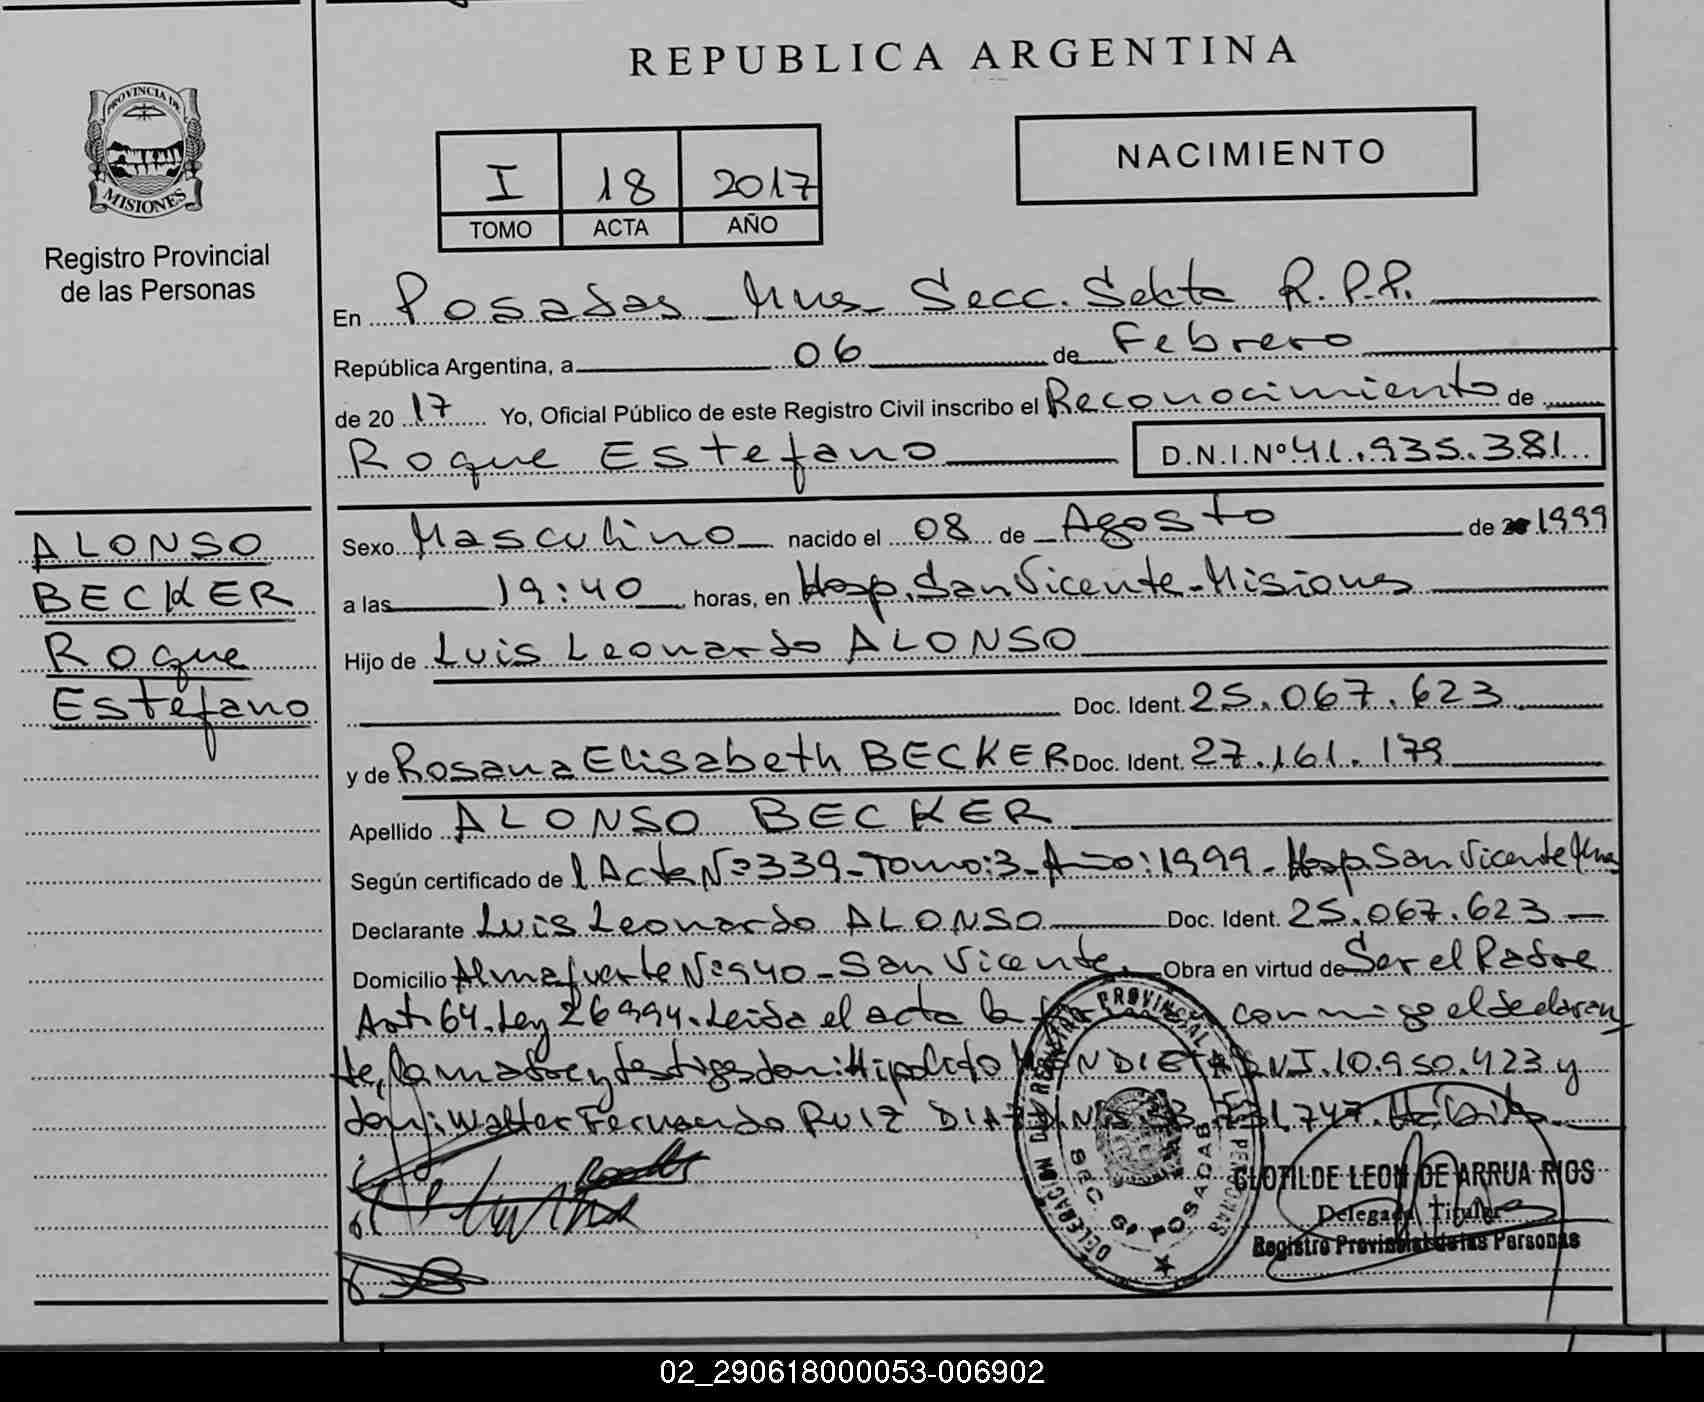 REPUBLICA ARGENTINA
PROVINCIA DE
MISIONES
Registro Provincial
de las Personas
I 18 2017
TOMO ACTA AÑO
NACIMIENTO
En Posadas Mnes Secc. Sexta R.P.P.
República Argentina, a 06 de Febrero
de 2017 Yo, Oficial Público de este Registro Civil inscribo el Reconocimiento de
Roque Estefano D.N.I.Nº 41.935.381
ALONSO
BECKER
Roque
Estefano
Sexo Masculino nacido el 08 de Agosto de 1999
a las 19:40 horas, en Hosp. San Vicente-Misiones
Hijo de Luis Leonardo ALONSO
Doc. Ident. 25.067.623
y de Rosana Elisabeth BECKER Doc. Ident. 27.161.179
Apellido ALONSO BECKER
Según certificado de l Acta Nº 339-Tomo:3-Año:1999-Hosp. San Vicente Mnes
Declarante Luis Leonardo ALONSO Doc. Ident. 25.067.623
Domicilio Almafuerte Nº 940-San Vicente. Obra en virtud de Ser el Padre
Art. 64. Ley 26994. Leida el acta la conmigo el declaran
te, la madre y testigos don: Hipolito DNI.10.950.423 y
don: Walter Fernando RUIZ DIAZ
DELEGACION DEL REGISTRO PROVINCIAL DE LAS PERSONAS
SEC. 6ª POSADAS
CLOTILDE LEON DE ARRUA RIOS
Delegada Titular
Registro Provincial de las Personas
02_290618000053-006902